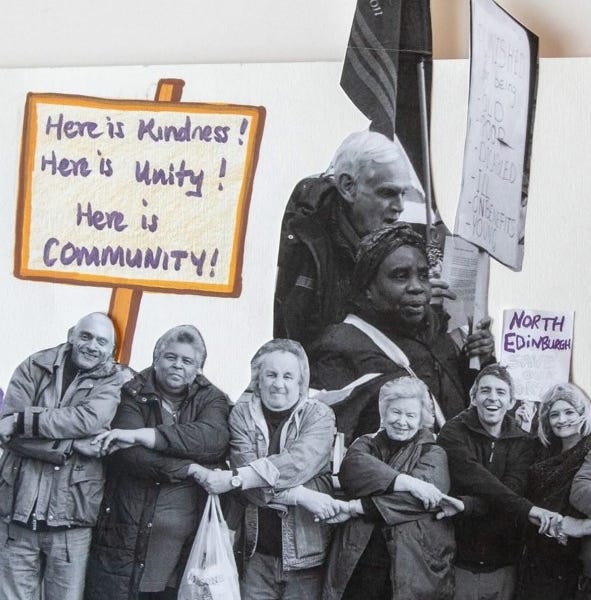 Here is Kindness!
Here is Unity!
Here is
COMMUNITY!
PUNISHED
for being
-OLD
-POOR
-DISABLED
-ILL
-ON BENEFITS
-YOUNG
NORTH
EDINBURGH
SAVE